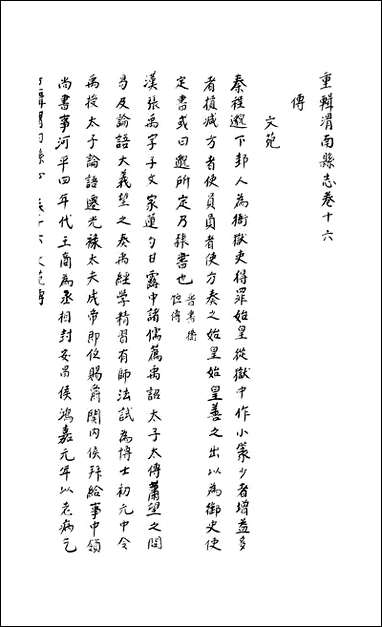 重輯渭南縣志卷十六
傳
文苑
秦程邈下邽人為衙獄吏得罪始皇從獄中作小篆少者增益多
者損減方者使員員者使方奏之始皇始皇善之出以為御史使
定書或曰邈所定乃隸書也晉書衛
恒傳
漢張禹字子文家蓮勺甘露中諸儒薦禹詔太子太傅蕭望之問
易及論語大義望之奏禹經學精習有師法試為博士初元中令
禹授太子論語遷光祿大夫成帝即位賜爵關內侯拜給事中領
尚書事河平四年代王商為丞相封安昌侯鴻嘉元年以老病乞